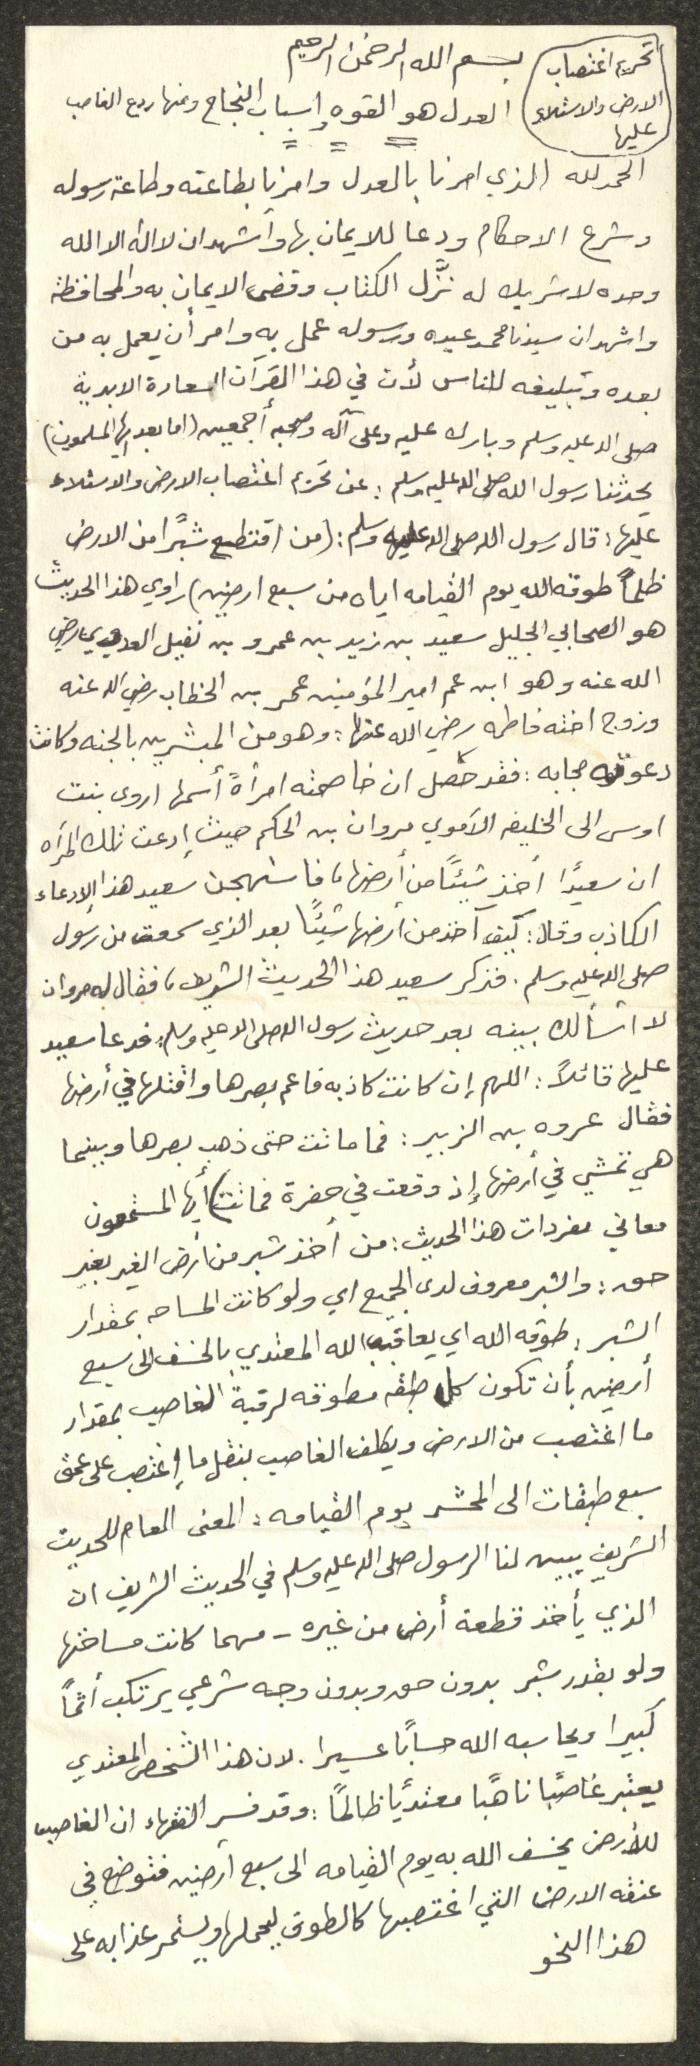 تحريم اغتصاب
الارض والاستلاء
عليها
بسم الله الرحمن الرحيم
العدل هو القوه وأسباب النجاح ومنها ردع الغاصب
الحمد لله الذي امرنا بالعدل وامرنا بطاعته وطاعة رسوله
وشرع الاحكام ودعا للايمان بها وأشهد ان لا اله الا الله
وحده لا شريك له نزَّل الكتاب وقضى الايمان به والمحافظة
واشهد ان سيدنا محمد عبده ورسوله عمل به وامر أن يعمل به من
بعده وتبليغه للناس لأن في هذا القرآن السعادة الابدية
صلى الله عليه وسلم وبارك عليه وعلى آله وصحبه أجمعين (اما بعد ايها المسلمون)
يحدثنا رسول الله صلى الله عليه وسلم : عن تحريم اغتصاب الارض والاستلاء
عليها : قال رسول الله صلى الله عليه وسلم : (من اقتطع شبرًا من الارض
ظلماً طوقه الله يوم القيامه اياه من سبع ارضين) راوي هذا الحديث
هو الصحابي الجليل سعيد بن زيد بن عمرو بن نفيل العدوي رضي
الله عنه وهو ابن عم امير المؤمنين عمر بن الخطاب رضي الله عنه
وزوج اخته فاطمه رضي الله عنها : وهو من المبشرين بالجنه وكانت
دعوته مجابه : فقد حصل ان خاصمته امرأةً أسمها اروى بنت
اوس الى الخليفه الأموي مروان بن الحكم حيث إدعت تلك المرأه
ان سعيدًا أخذ شيئًا من أرضها، فاستهجن سعيد هذا الإدعاء
الكاذب وقال : كيف آخذ من أرضها شيئًا بعد الذي سمعت من رسول
صلى الله عليه وسلم . فذكر سعيد هذا الحديث الشريف، فقال له مروان
لا أسألك بينه بعد حديث رسول الله صلى الله عليه وسلم : فدعا سعيد
عليها قائلاً : اللهم إن كانت كاذبه فاعم بصرها واقتلها في أرضها
فقال عروه بن الزبير : فما ماتت حتى ذهب بصرها وبينما
هي تمشي في أرضها إذ وقعت في حفرة فماتت) أيها المستمعون
معاني مفردات هذا الحديث : من أخذ شبر من أرض الغير بغير
حق : والشبر معروف لدى الجميع اي ولو كانت المساحه بمقدار
الشبر : طوقه الله اي يعاقب الله المعتدي بالخسف الى سبع
أرضين بأن تكون كل طبقه مطوقه لرقبة الغاصب بمقدار
ما اغتصب من الارض ويكلف الغاصب بنقل ما إغتصب على عمق
سبع طبقات الى المحشر يوم القيامه : المعنى العام للحديث
الشريف يبين لنا الرسول صلى الله عليه وسلم في الحديث الشريف ان
الذي يأخذ قطعة أرض من غيره - مهما كانت مساحتها
ولو بقدر شبر بدون حق وبدون وجه شرعي يرتكب أثماً
كبيرا ويحاسبه الله حسابًا عسيرا . لان هذا الشخص المعتدي
يعتبر غاصبًا ناهبًا معتديًا ظالمًا : وقد فسر الفقهاء ان الغاصب
للأرض يخسف الله به يوم القيامه الى سبع أرضين فتوضع في
عنقه الارض التي اغتصبها كالطوق ليحملها ويستمر عذابه على
هذا النحو